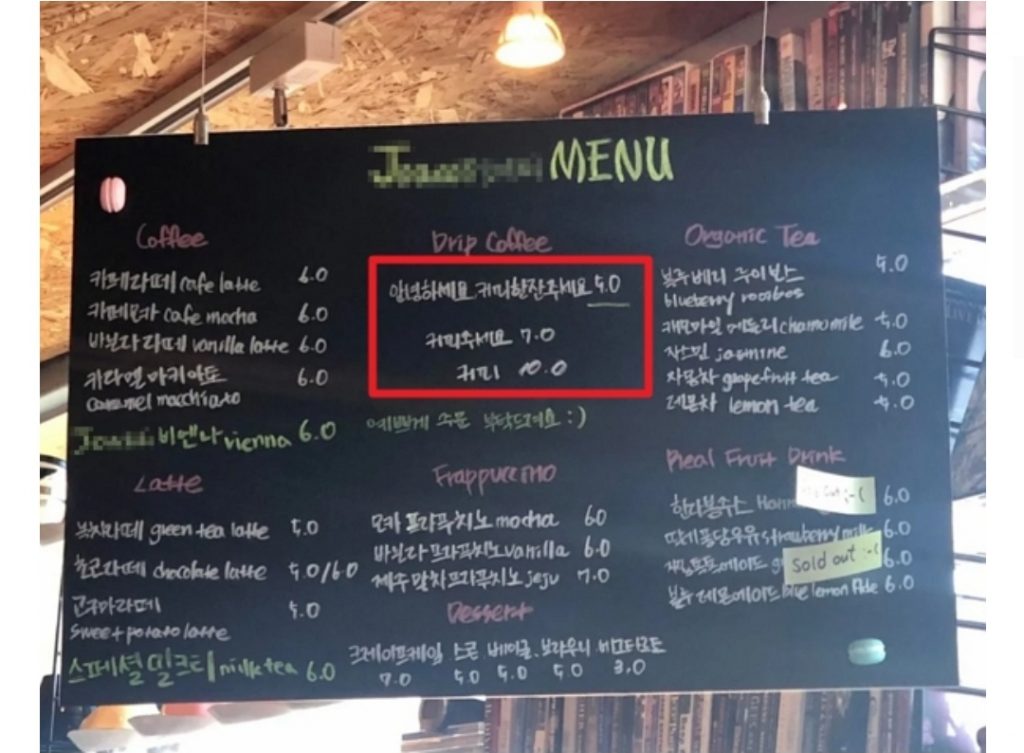 MENU
Coffee
카페라떼 cafe latte 6.0
카페모카 cafe mocha 6.0
바닐라라떼 vanilla latte 6.0
카라멜 마키아토 6.0
caramel macchiato
비엔나 vienna 6.0
Drip Coffee
안녕하세요 커피한잔주세요 5.0
커피주세요 7.0
커피 10.0
예쁘게 주문 부탁드려요 :)
Organic Tea
블루베리 루이보스 5.0
blueberry rooibos
캐모마일 메들리 chamomile 5.0
자스민 jasmine 6.0
자몽차 grapefruit tea 5.0
레몬차 lemon tea 5.0
Latte
녹차라떼 green tea latte 5.0
초코라떼 chocolate latte 5.0/6.0
고구마라떼 5.0
sweet potato latte
스페셜 밀크티 milk tea 6.0
Frappuccino
모카 프라푸치노 mocha 6.0
바닐라 프라푸치노 vanilla 6.0
제주 말차 프라푸치노 jeju 7.0
Dessert
크레이프케익 스콘 베이글 브라우니
7.0 5.0 5.0 5.0 3.0
Real Fruit Drink
한라봉주스 6.0
strawberry milk 6.0
sold out :-(
6.0
블루레몬에이드 blue lemon Ade 6.0